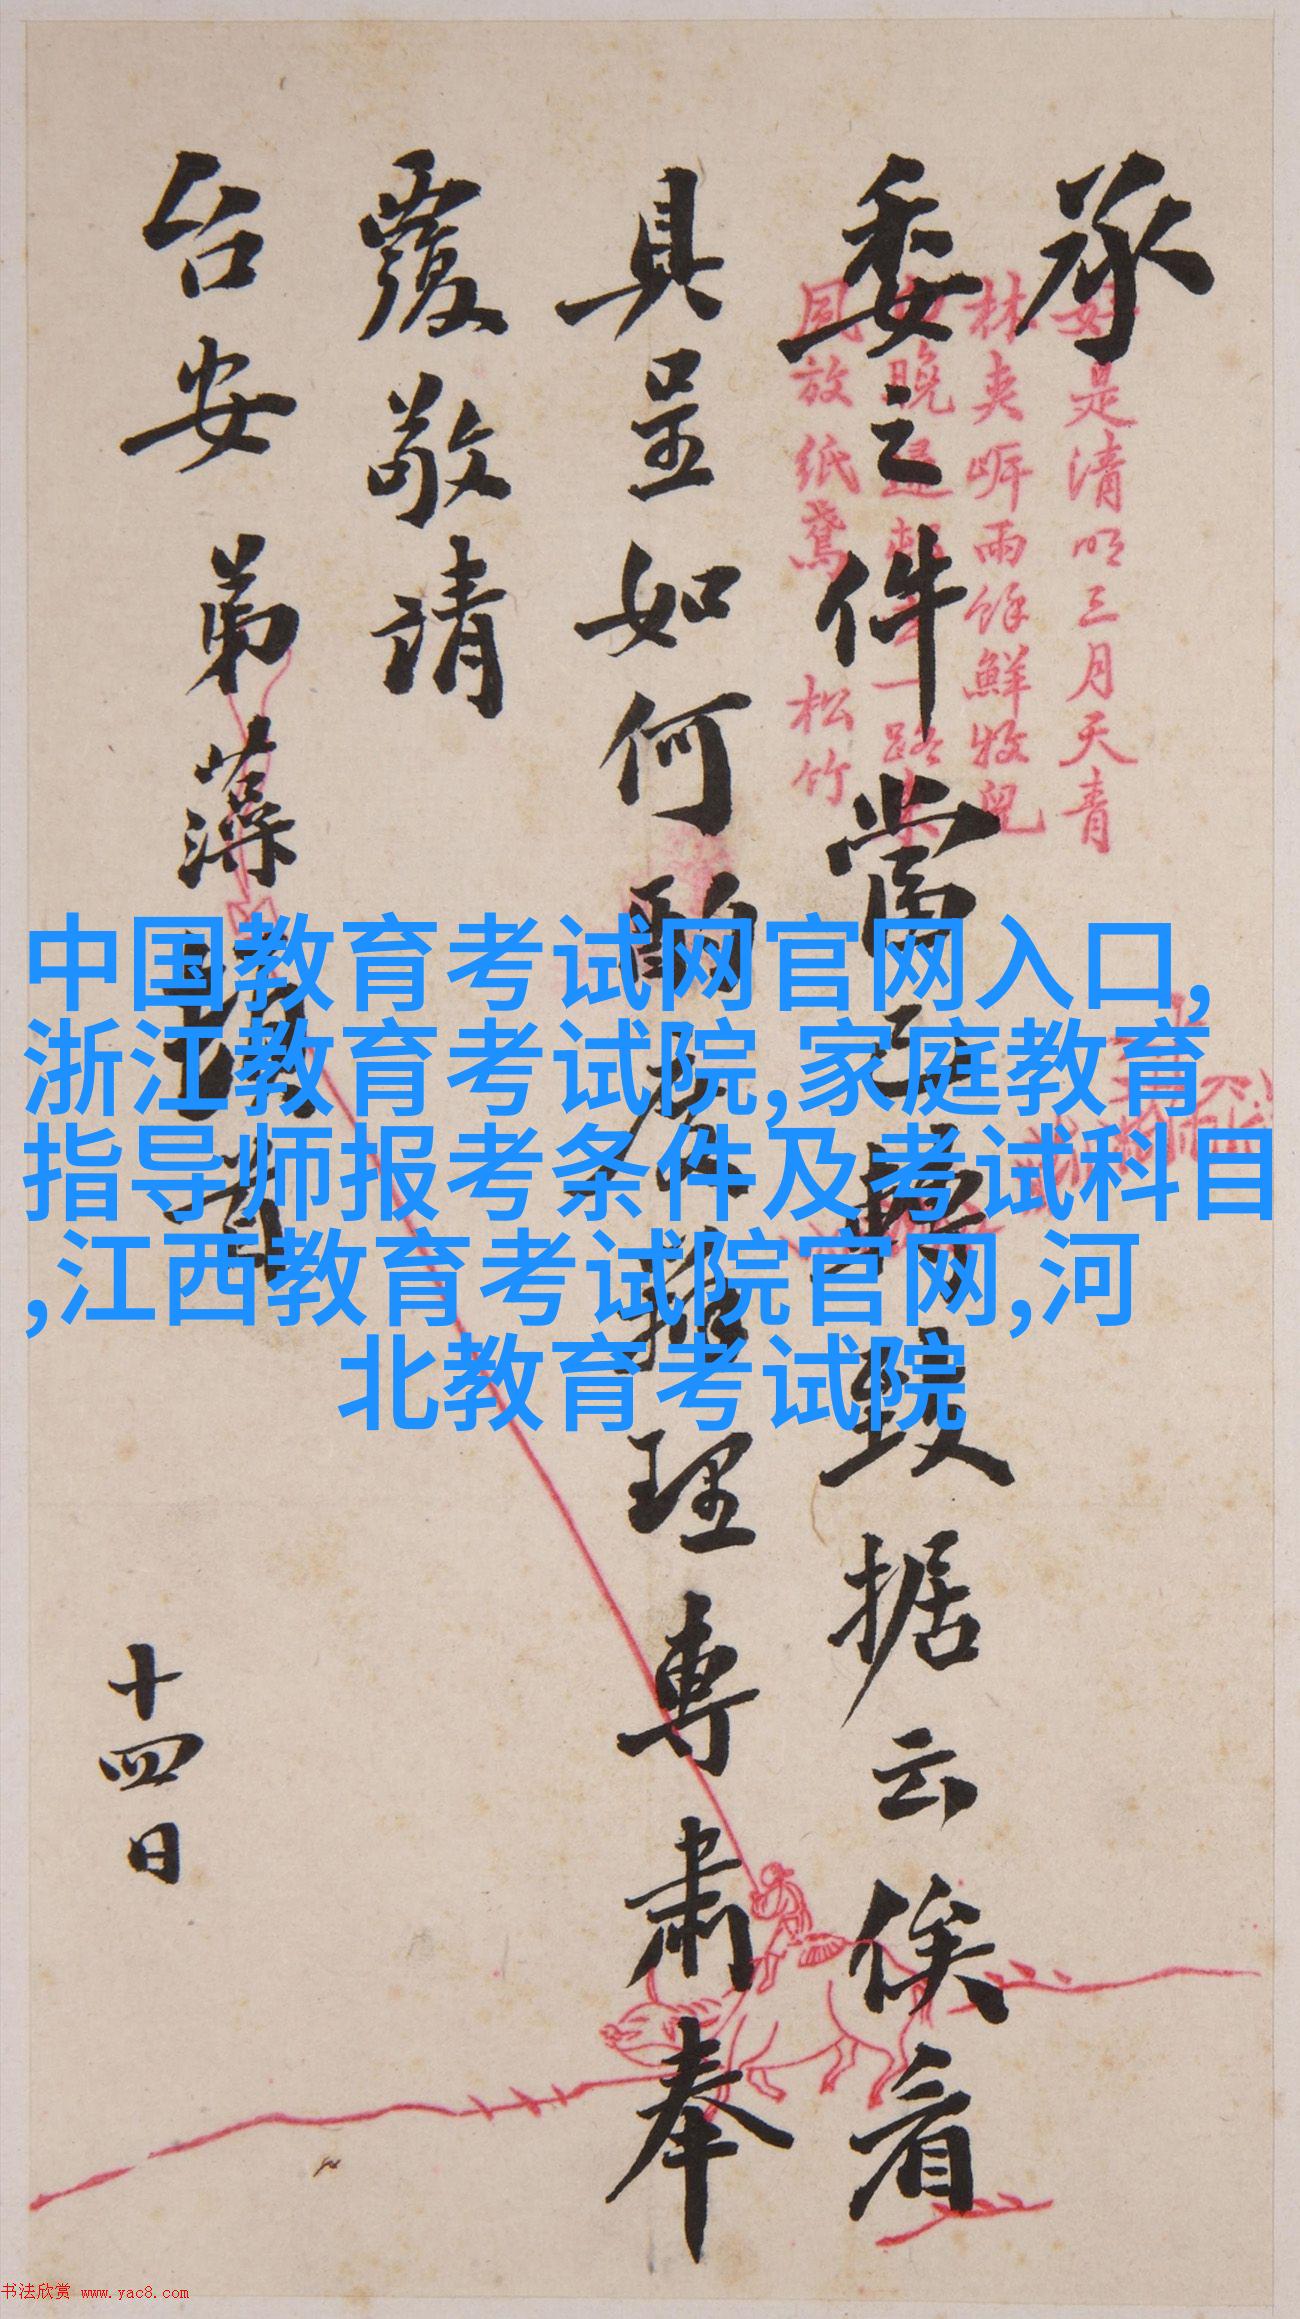 承
委之件當已轉致據云俟看
具呈如何酌
理專肅奉
覆敬請
台安 弟藻
十四日
好是清明三月天青
林夾㟁雨餘鮮牧兒
晚
一路
風放紙鳶 松竹
中国教育考试网官网入口,
浙江教育考试院,家庭教育
指导师报考条件及考试科目
,江西教育考试院官网,河
北教育考试院
书法欣赏 www.yac8.com